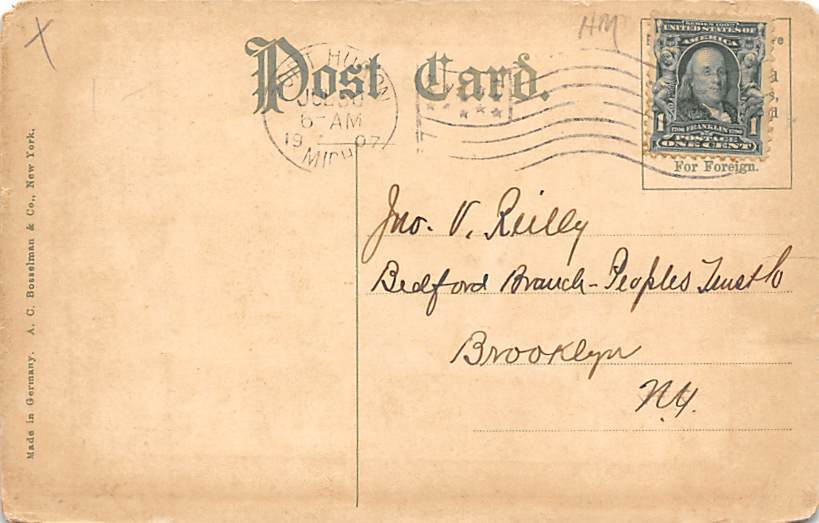 X
HM
Post Card.
PORT HURON
JUL 30
6-AM
1907
MICH
SERIES 1902
UNITED STATES OF
AMERICA
1 1706 FRANKLIN 1790 1
POSTAGE
ONE CENT
For Foreign.
Jno. V. Reilly
Bedford Branch-Peoples Trust Co
Brooklyn
N.Y.
Made in Germany. A. C. Bosselman & Co., New York.